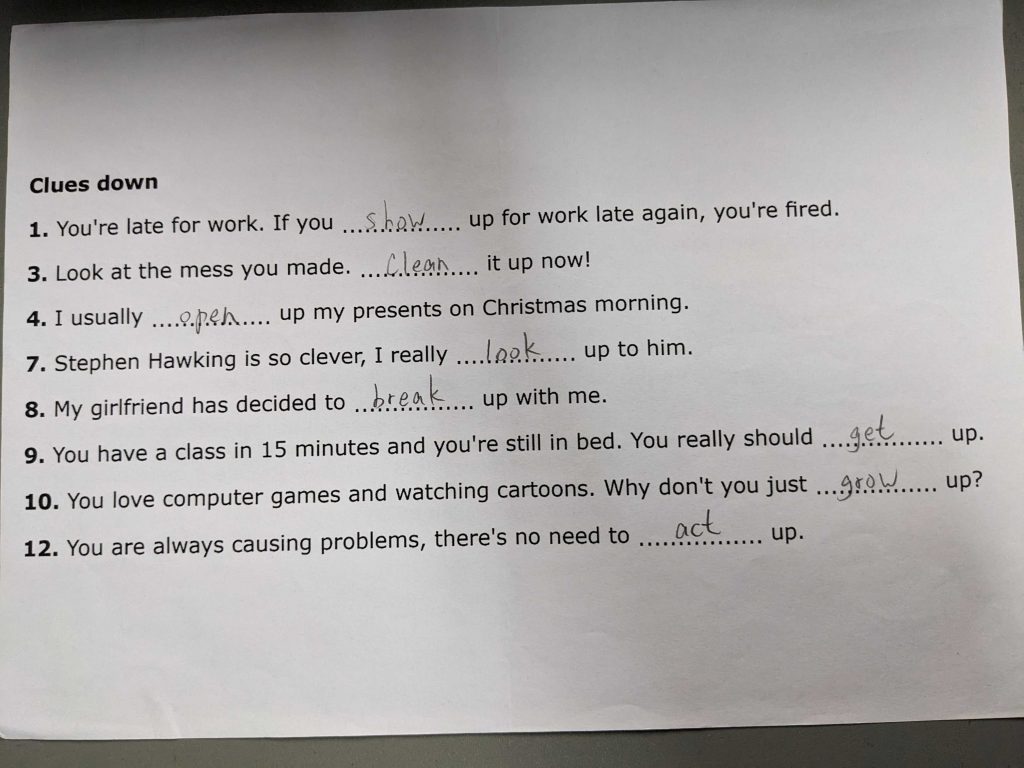 Clues down
1. You're late for work. If you ...show... up for work late again, you're fired.
3. Look at the mess you made. ...Clean... it up now!
4. I usually ...open... up my presents on Christmas morning.
7. Stephen Hawking is so clever, I really ...look... up to him.
8. My girlfriend has decided to ...break... up with me.
9. You have a class in 15 minutes and you're still in bed. You really should ...get... up.
10. You love computer games and watching cartoons. Why don't you just ...grow... up?
12. You are always causing problems, there's no need to ...act... up.